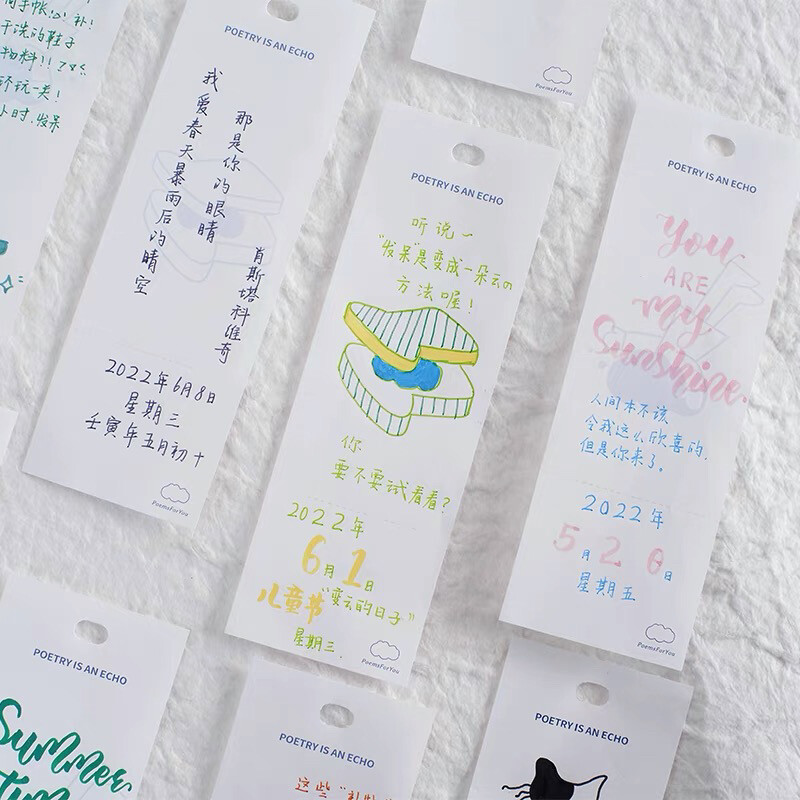 POETRY IS AN ECHO
我爱春天暴雨后的晴空
那是你的眼睛
肖斯塔科维奇
2022年6月8日
星期三
壬寅年五月初十
PoemsForYou
干洗的鞋子
PoemsForYou
POETRY IS AN ECHO
听说～
“发呆”是变成一朵云の
方法喔！
你
要不要试看看？
2022年
6月1日
儿童节“变云的日子”
星期三.
PoemsForYou
POETRY IS AN ECHO
You
ARE
My
Sunshine.
人间本不该
令我这么欣喜的.
但是你来了。
2022年
5月20日
星期五
PoemsForYou
POETRY IS AN ECHO
Summer
POETRY IS AN ECHO
这些“
POETRY IS AN ECHO